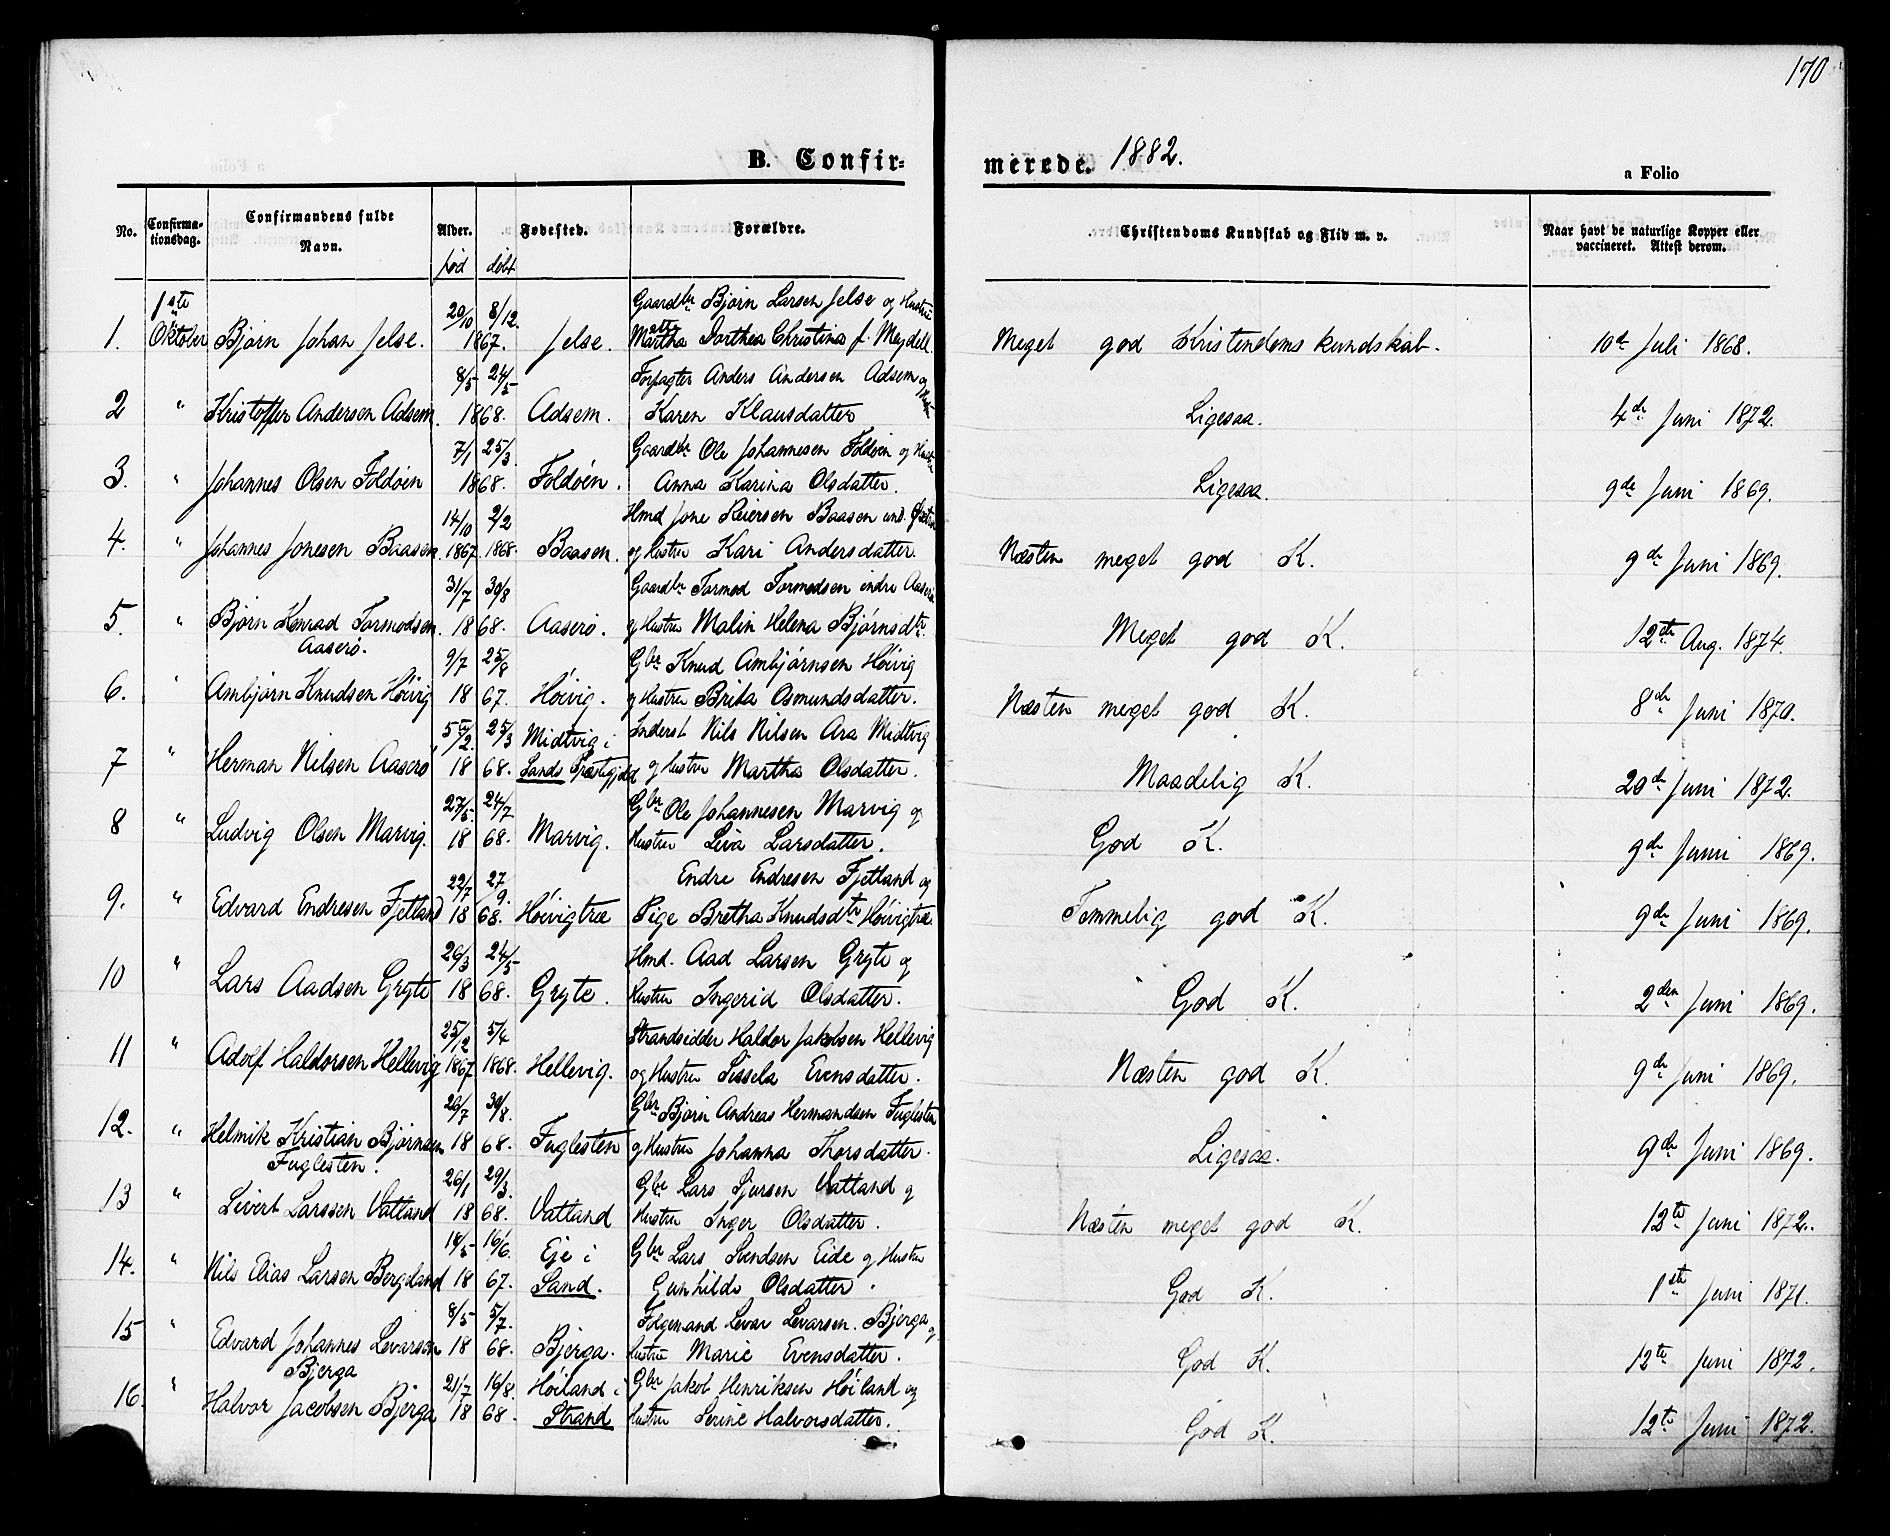 170
B. Confir-
merede. 1882.
a Folio
No.
Confirma-
tionsdag.
Confirmandens fulde
Navn.
Alder.
Fødested.
Forældre.
Christendoms Kundskab og Flid m. v.
Naar havt de naturlige Kopper eller
vaccineret. Attest derom.
fød døbt
1ste 20/10 8/12 Gaardbr Bjørn Larsen Jelse og Hustru
1. Oktober Bjørn Johan Jelse. 1867. Jelse. Martha Dorthea Christina f. Meydell. Meget god Kristendomskundskab. 10de Juli 1868.
8/5 24/5 Forpagter Anders Andersen Adsem og Hustru
2 " Kristoffer Andersen Adsem. 1868. Adsem. Karen Klausdatter Ligesaa. 4de Juni 1872.
7/1 25/3 Gaardbr Ole Johannesen Foldøen og Hustru
3. " Johannes Olsen Foldøen 1868. Foldøen. Anna Karina Olsdatter. Ligesaa. 9de Juni 1869.
14/10 2/2 Hmd Jone Reiersen Baasen und.
4. " Johannes Jonesen Baasen. 1867 1868. Baasen. og Hustru Kari Andersdatter. Næsten meget god K. 9de Juni 1869.
31/7 30/8 Gaardbr Tormod Tormodsen indre Aaserø
5. " Bjørn Konrad Tormodsen. 1868. Aaserø. og Hustru Malin Helena Bjørnsdtr. Meget god K. 12te Aug. 1874.
Aaserø.
9/7 25/8 Gbr Knud Ambjørnsen Høivig
6. " Ambjørn Knudsen Høivig 1867. Høivig. og Hustru Brita Osmundsdatter. Næsten meget god K. 8de Juni 1870.
5te/2. 25/3 Midtvig i Inderst Nils Nilsen Ara Midtvig
7 " Herman Nilsen Aaserø 1868. Sands Præstegjeld og Hustru Martha Olsdatter. Maadelig K. 20de Juni 1872.
27/5 24/7 Gbr Ole Johannesen Marvig og
8 " Ludvig Olsen Marvig. 1868. Marvig. Hustru Liva Larsdatter. God K. 9de Juni 1869.
22/7 27/9. Endre Endresen Fjetland og
9. " Edvard Endresen Fjetland 1868. Høivigtræ Pige Bretha Knudsdtr Høivigtræ. Temmelig god K. 9de Juni 1869.
26/3 24/5 Hmd. Aad Larsen Gryte og
10 " Lars Aadsen Gryte 1868. Gryte. Hustru Ingerid Olsdatter. God K. 2den Juni 1869.
25/2 5/4 Strandsidder Haldor Jakobsen Hellevig
11 " Adolf Haldorsen Hellevig 1867 1868. Hellevig. og Hustru Sissela Evensdatter. Næsten god K. 9de Juni 1869.
26/7 30/8. Gbr Bjørn Andreas Hermandsen Fuglesten
12. " Helmik Kristian Bjørnsen 1868. Fuglesten og Hustru Johanna Thorsdatter. Ligesaa. 9de Juni 1869.
Fuglesten.
26/1 29/3. Gbr Lars Sjursen Vatland og
13 " Sivert Larssen Vatland 1868. Vatland Hustru Inger Olsdatter. Næsten meget god K. 12te Juni 1872.
18/5 16/6. Eje i Gbr Lars Svendsen Eide og Hustru
14. " Nils Elias Larsen Bergeland 1867. Sand. Gunhilde Olsdatter. God K. 1ste Juni 1871.
8/5 5/7. Folgemand Levar Levarsen. Bjerga og
15 " Edvard Johannes Levarsen 1868. Bjerga. Hustru Marie Evensdatter. God K. 12te Juni 1872.
Bjerga
21/7 16/8. Høiland i Gbr Jakob Henriksen Høiland og
16. " Halvor Jacobsen Bjerga 1868. Strand Hustru Serine Halvorsdatter. God K. 12te Juni 1872.